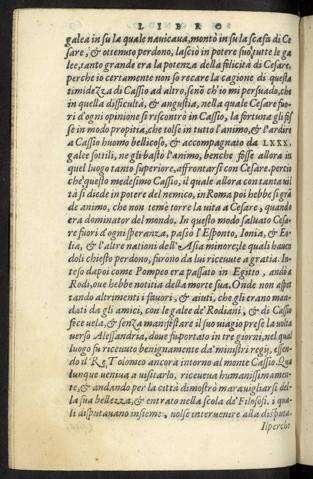 LIBRO
galea in su la quale nauicaua, montò in su la scafa di Ce
sare, & ottenuto perdono, lasciò in potere suo tutte le ga
lee, tanto grande era la potenza della felicità di Cesare,
perche io certamente non so recare la cagione di questa
timidezza di Cassio ad altro, senō ch'io mi persuado, che
in quella difficultà, & angustia, nella quale Cesare fuo-
ri d'ogni opinione si riscontrò in Cassio, la fortuna gli fos
se in modo propitia, che tolse in tutto l'animo, & l'ardire
a Cassio huomo bellicoso, & accompagnato da LXXX.
galee sottili, ne gli bastò l'animo, benche fosse allora in
quel luogo tanto superiore, affrontarsi con Cesare, percio
che questo medesimo Cassio, il quale allora con tanta uil
tà si diede in potere del nemico, in Roma poi hebbe si grā
de animo, che non temè torre la uita a Cesare, quando e-
era dominator del mondo. In questo modo saluato Cesa-
re fuori d'ogni speranza, passò l'Esponto, Ionia, & Eo-
lia, & l'altre nationi dell'Asia minore; le quali hauen
doli chiesto perdono, furono da lui riceuute a gratia. In-
teso dapoi come Pompeo era passato in Egitto, andò a
Rodi, oue hebbe notitia della morte sua. Onde non aspet
tando altrimenti i fauori, & aiuti, che gli erano man-
dati da gli amici, con le galee de' Rodiani, & di Cassio
fece uela, & senza manifestare il suo uiagio prese la uolta
uerso Alessandria, doue fu portato in tre giorni, nel qual
luogo fu riceuuto benignamente da' ministri regij, essen-
do il Re Tolomeo ancora intorno al monte Cassio. Qua
lunque ueniua a uisitarlo, riceueua humanissimamen-
te, & andando per la città dimostrò marauigliarsi del-
la sua bellezza, & entrato nella scola de' Filosofi, i qua-
li disputauano insieme, uolse interuenire alla disputa.
Ilperche